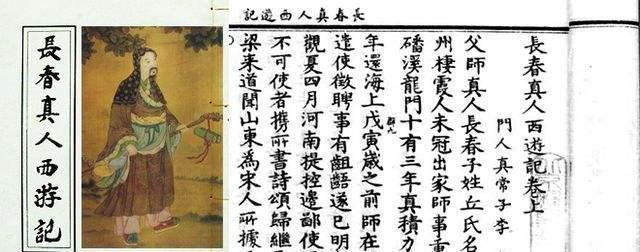 長春真人西游記
長春真人西遊記
長春真人西遊記卷上
門人真常子李
父師真人長春子姓丘氏名
州棲霞人未冠出家師事重
磻溪龍門十有三年真積力
年還海上戊寅歲之前師在
遣使徵聘事有齟齬遂已明
觀夏四月河南提控邊鄙使
不可使者攜所書詩頌歸繼
梁來道聞山東為宋人所據